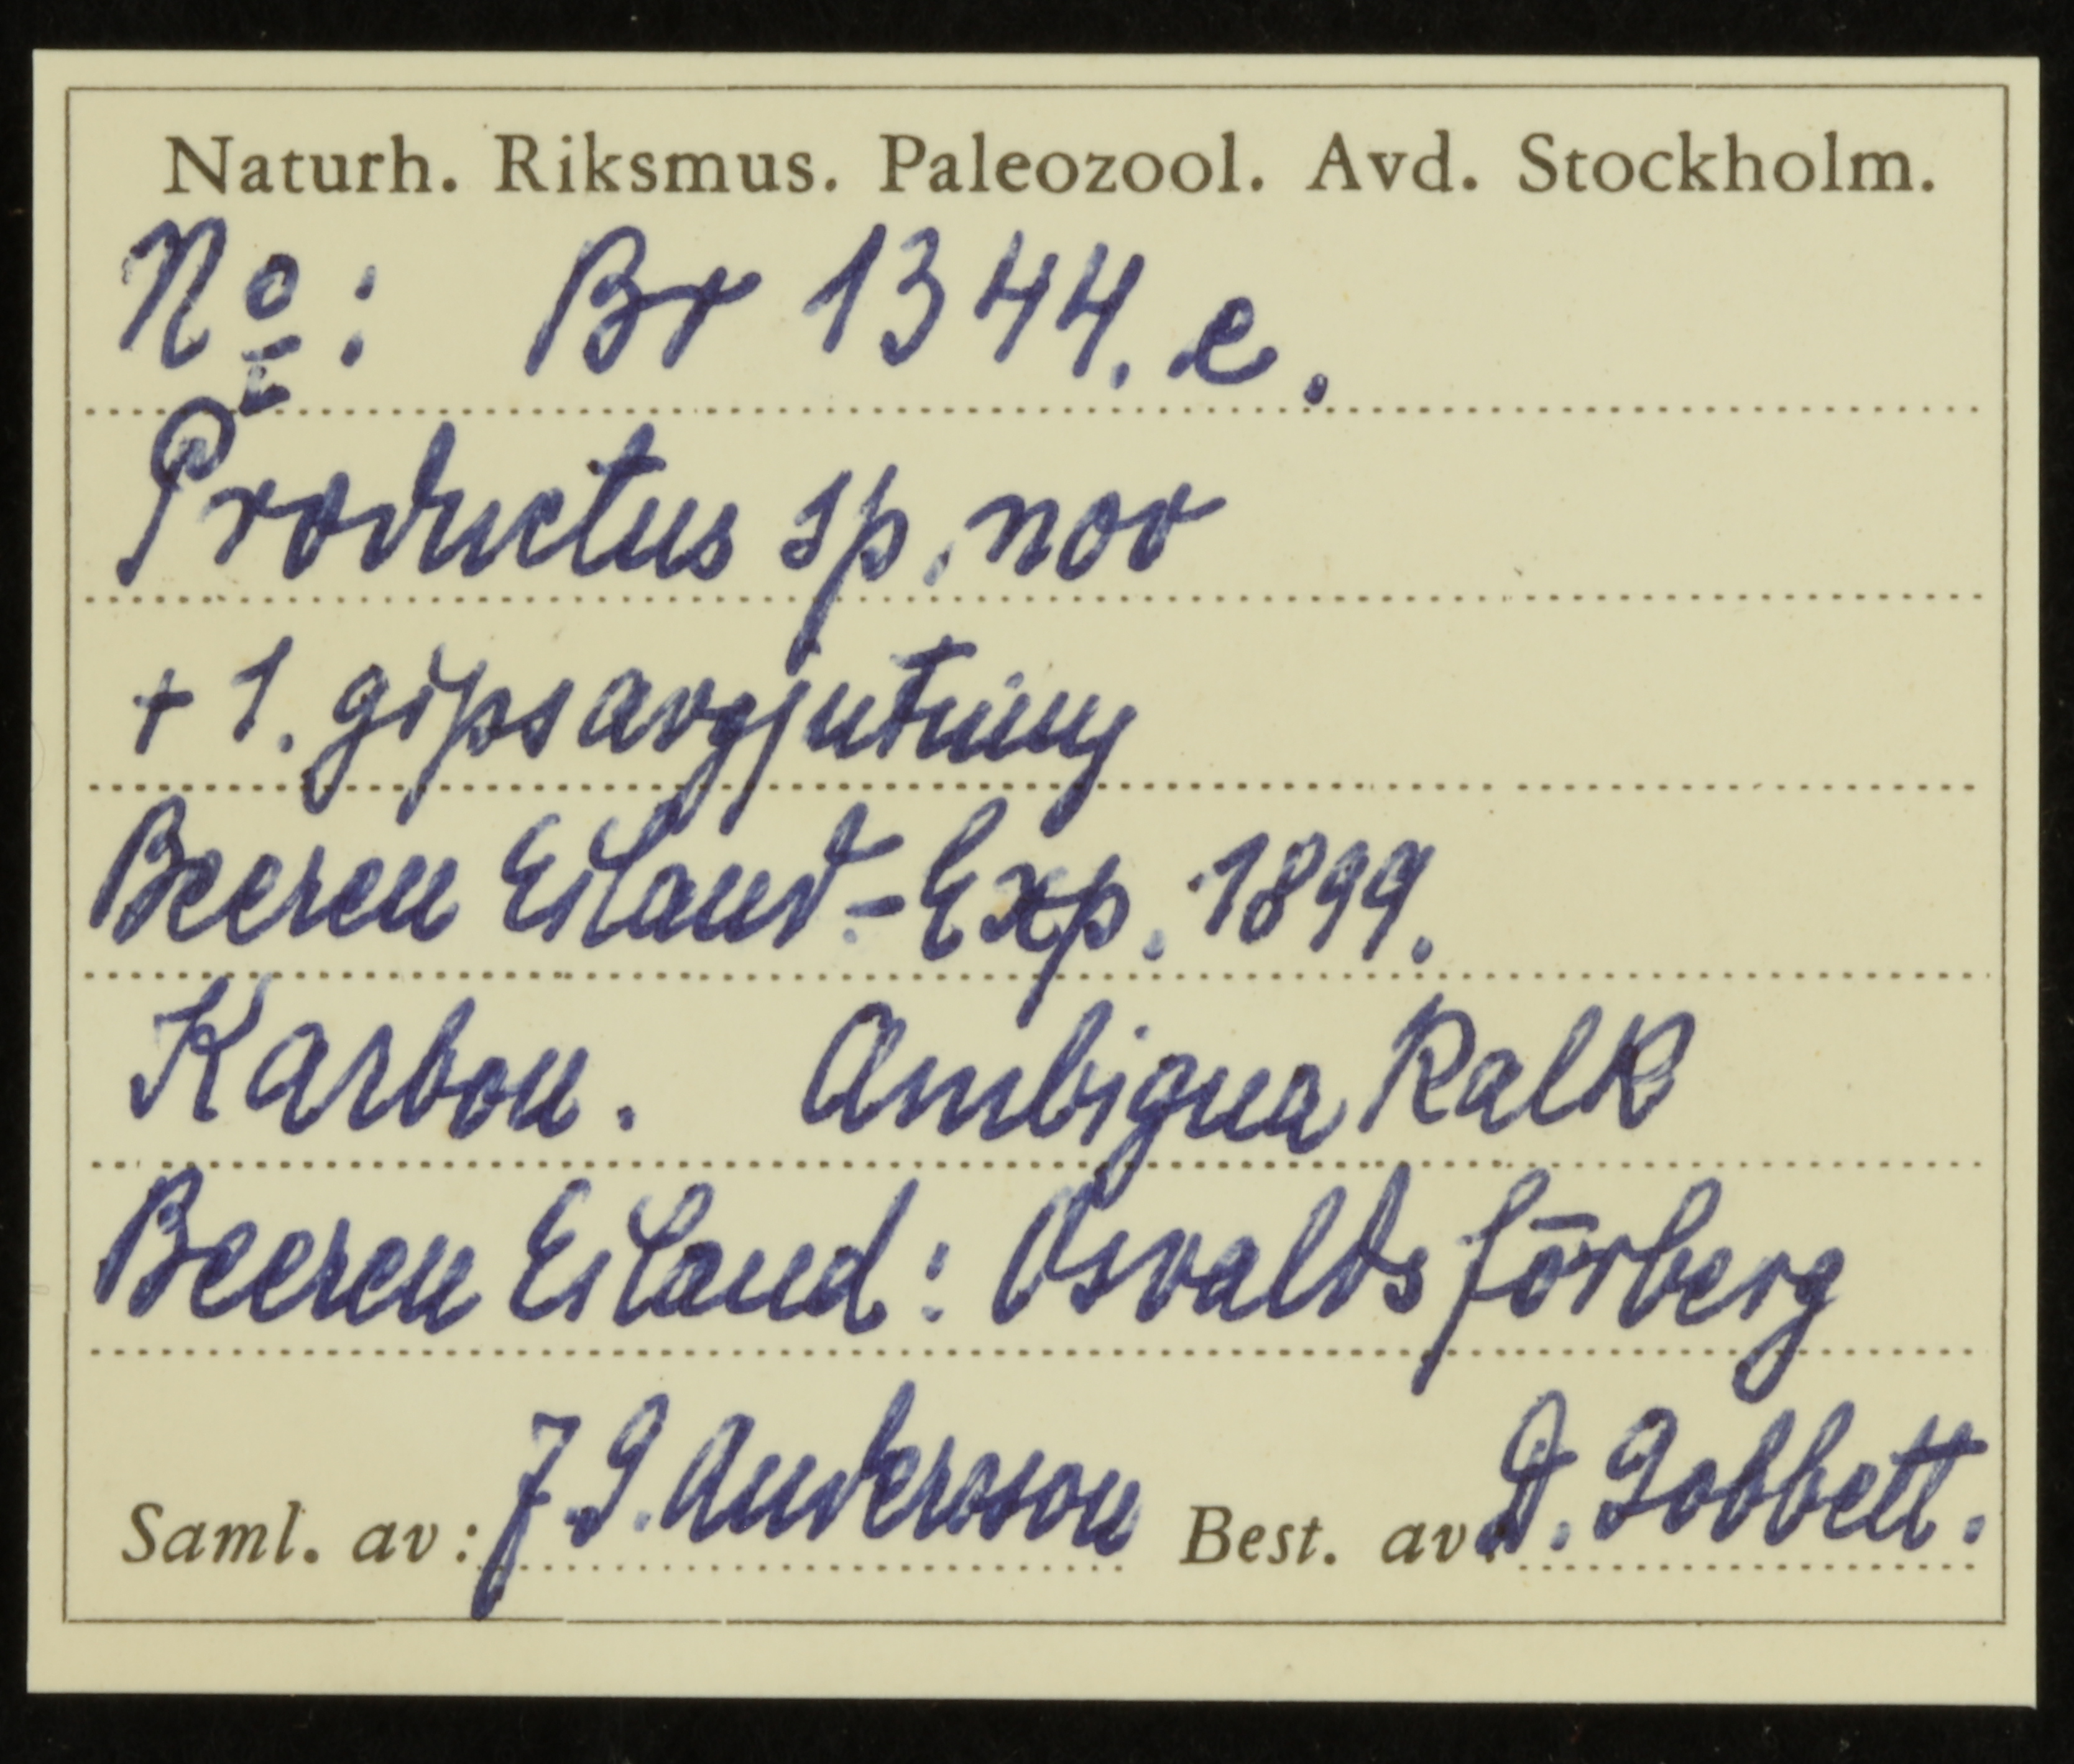 Naturh. Riksmus. Paleozool. Avd. Stockholm.
Nº: Br 1344. e.
Productus sp. nov
+ 1. gipsavgjutning
Beeren Eiland-Exp. 1899.
Karbon. Ambigua Kalk
Beeren Eiland: Osvalds förberg
Saml. av: J. G. Andersson Best. av D. Gobbett.